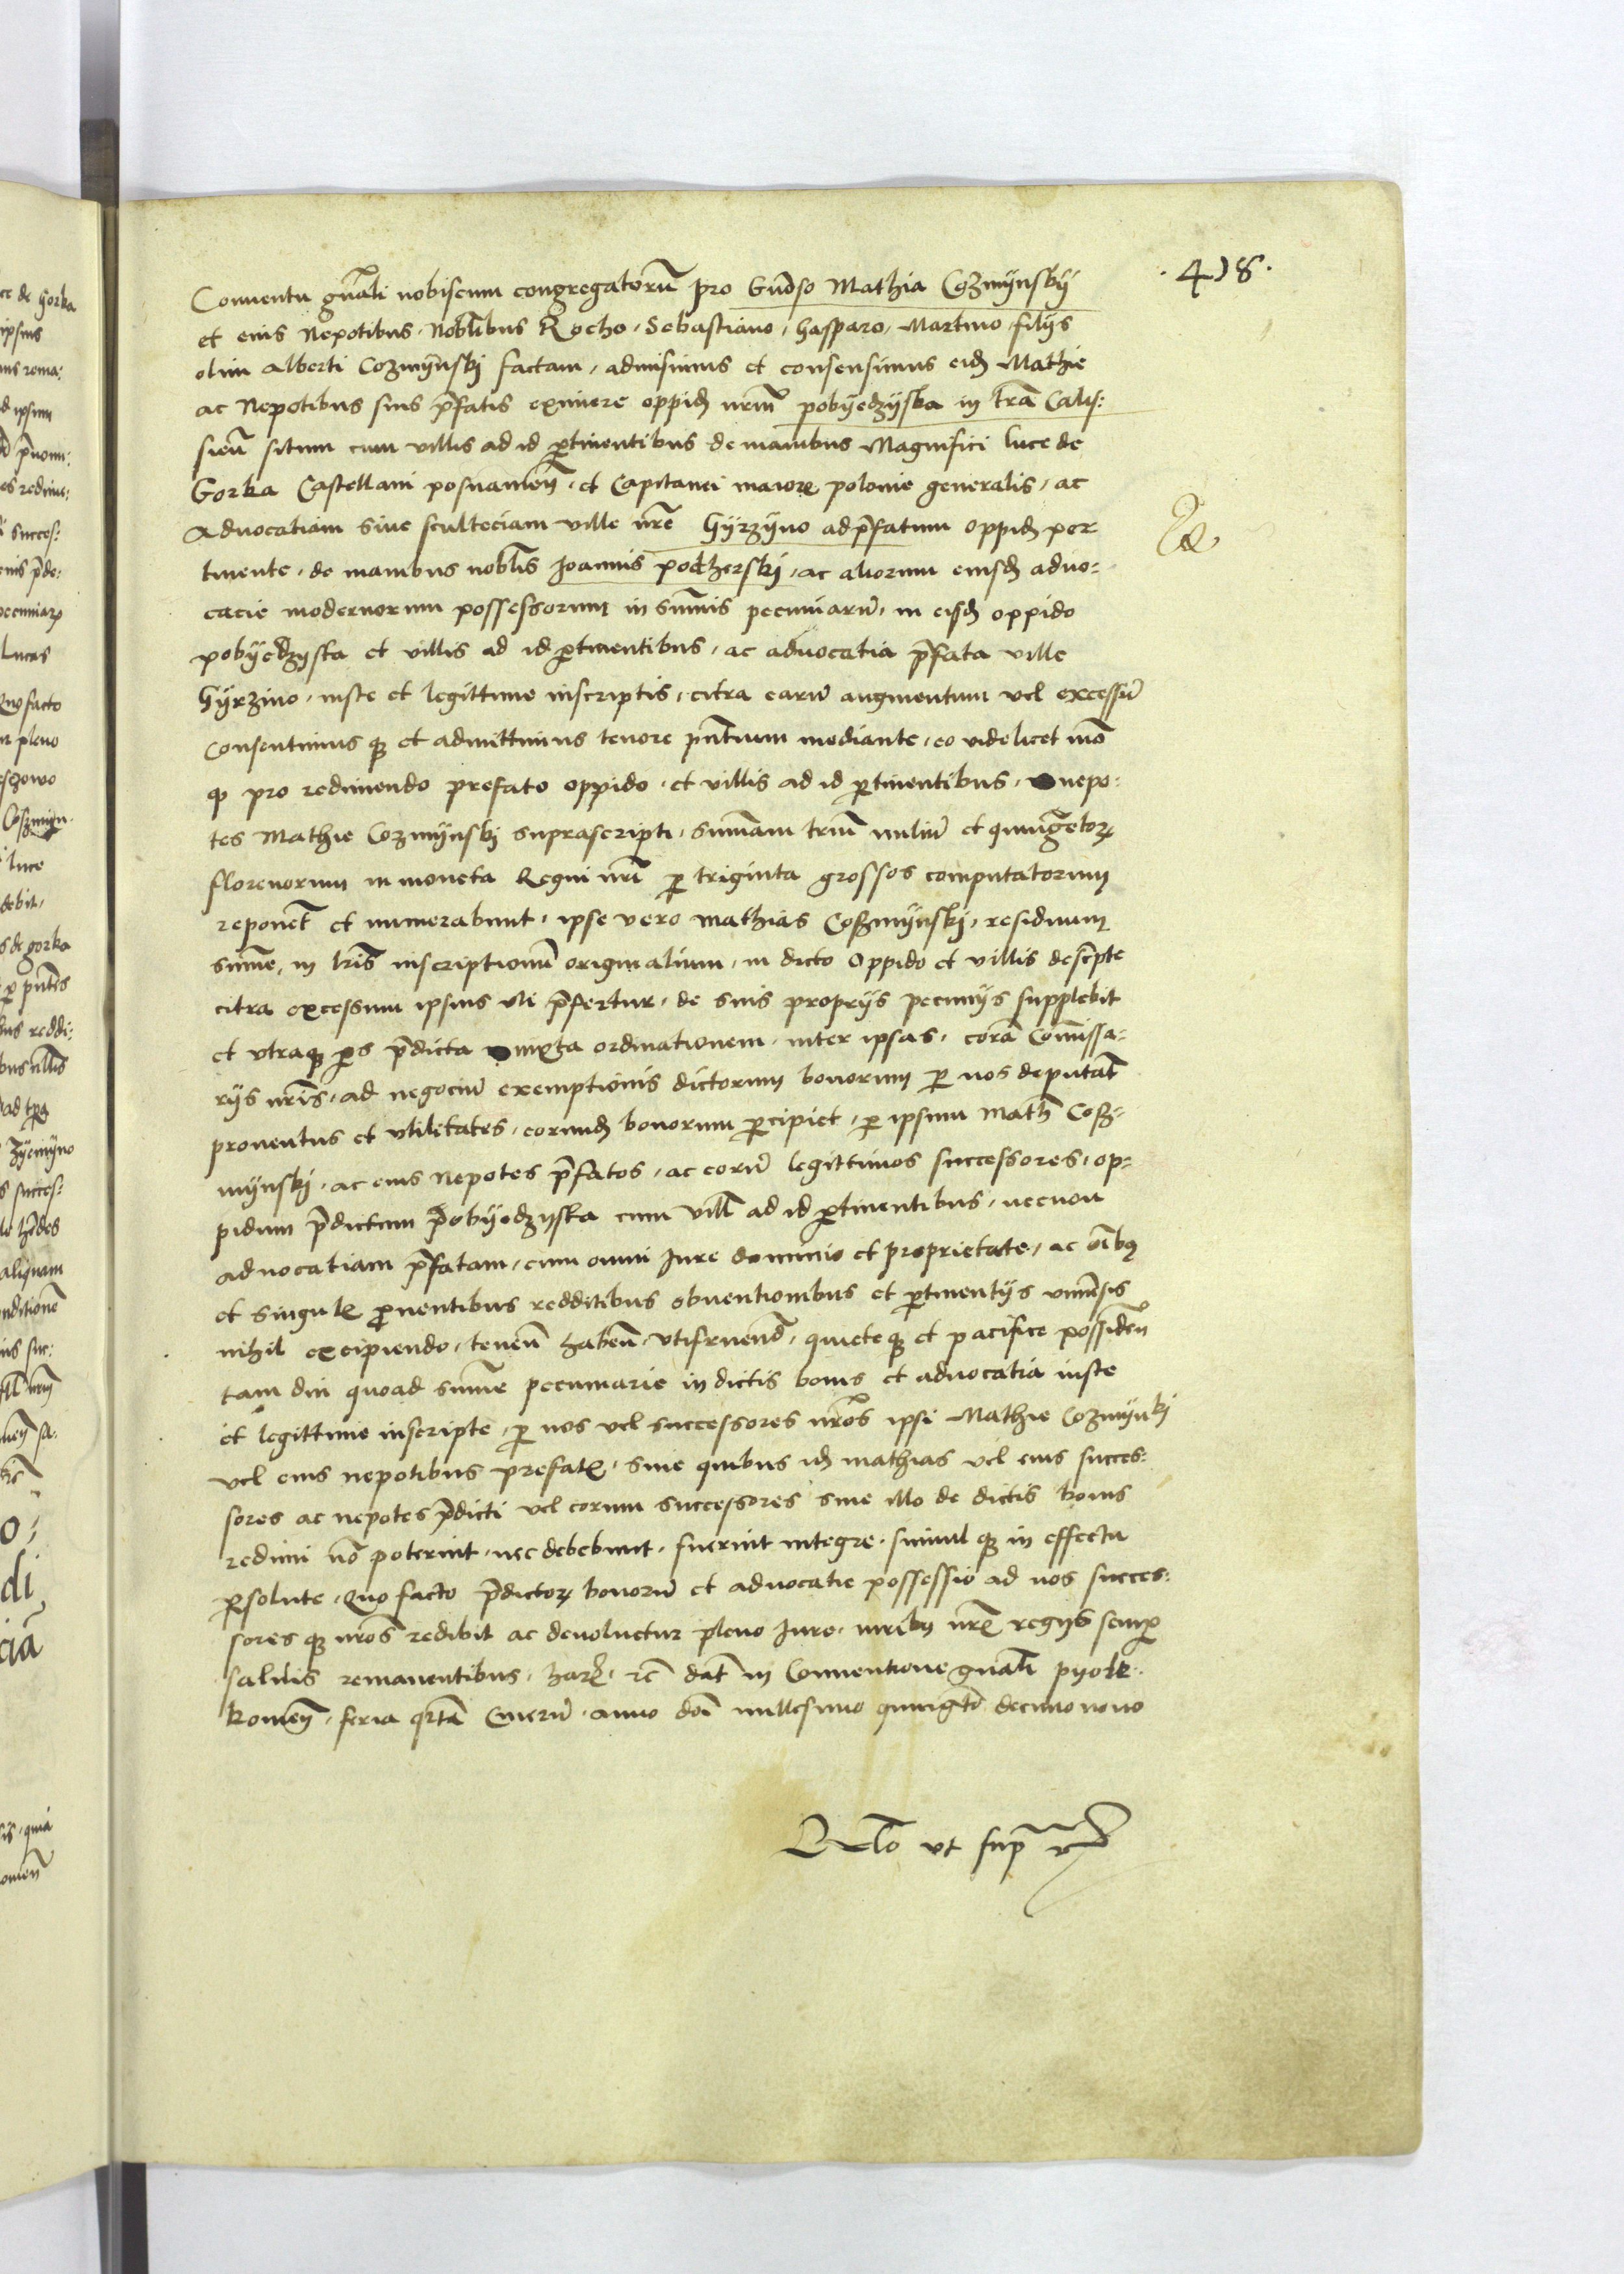 . 418 .
Conventu gn̄ali nobiscum congregatorū pro Gn̄oso Mathia Cozmÿnskÿ
et eius Nepotibus · Nobl̄ibus Rocho · Sebastiano · Gasparo · Martino · filÿs
olim Alberti Cozmÿnskj factam · admisimus et consensimus eid̄ Mathie
ac Nepotibus suis p̄fatis eximere oppid̄ nrm̄ pobÿedzÿska in tr̄a Calis:
sien̄ situm cum villis ad id ꝑtinentibus de manibus Magnifici luce de
Gorka Castellani posnanien̄ · et Capitanei maiore polonie generalis · ac
Advocatiam sive sculteciam ville nr̄e Gÿrzÿno ad p̄fatum oppid̄ per
tinente · de manibus nobl̄is Joannis podzerskj · ac aliorum eiusd̄ advo:
cacie modernorum possessorum in sūmis pecuniarū · in eisd̄ oppido
pobÿedzyska et villis ad id ꝑtinentibus · ac advocatia p̄fata ville
Gÿrzino · iuste et legittime inscriptis · citra earū augmentum vel excessū
Consentimus qꝫ et admittimus tenore pn̄tium mediante · eo videlicet mō
ꝙ pro redimendo prefato oppido · et villis ad id ꝑtinentibus · nepo:
tes Mathie Cozmÿnskj suprascripti · sūmam triū miliū et quingētoꝝ
florenorum in moneta Regni nr̄i ꝑ triginta grossos computatorum
reponēt et numerabunt · ipse vero mathias Coßmÿnskj · residuum
sūme · in lr̄is inscriptionū originalium · in dicto Oppido et villis descr̄pte
citra excessum ipsius uti p̄fertur · de suis proprÿs pecunÿs supplebit
et utraqꝫ ꝑs p̄dicta iuxta ordinationem · inter ipsas · corā Com̄issa:
rÿs nr̄is · ad negociū exemptionis dictorum bonorum ꝑ nos deputat̄
proventus et utilitates · eorund̄ bonorum ꝑcipiet · ꝑ ipsum Math̄ Coß:
mÿnskj · ac eius nepotes p̄fatos · ac eorū legittimos successores · op:
pidum p̄dictum pobÿedzyska cum vill̄ ad id ꝑtinentibus · necnon
advocatiam p̄fatam · cum omni Jure dominio et proprietate · ac oībꝫ
et singulꝭ ꝓventibus redditibus obventionibus et ꝑtinentÿs univēsis
nihil excipiendo · tenen̄ haben̄ · utifruend̄ · quiete qꝫ et pacifice possiden̄
tam diu quoad sūme pecuniarie in dictis bonis et advocatia iuste
et legittime inscripte · ꝑ nos vel successores nr̄os ipsi Mathie Cozmÿnkj
vel eius nepotibus prefatꝭ · sine quibus id̄ mathias vel eius succes:
sores ac nepotes p̄dicti vel eorum successores sine illo de dictis bonis
redimi nō poterint · nec debebunt · fuerint integre · simul qꝫ in effectu
ꝑsolute · Quo facto p̄dictoꝝ bonorū et advocatie possessio ad nos succes:
sores qꝫ nr̄os redibit ac devolvetur pleno Jure · iuribꝫ nr̄ꝭ regÿs semꝑ
salvis remanentibus · harꝭ · rc̄ dat̄ in Conventione gn̄ali pyotr:
komen̄ · feria qr̄ta Cinerū · anno dnī millesimo quingēto decimo nono
Relō ut sup̄